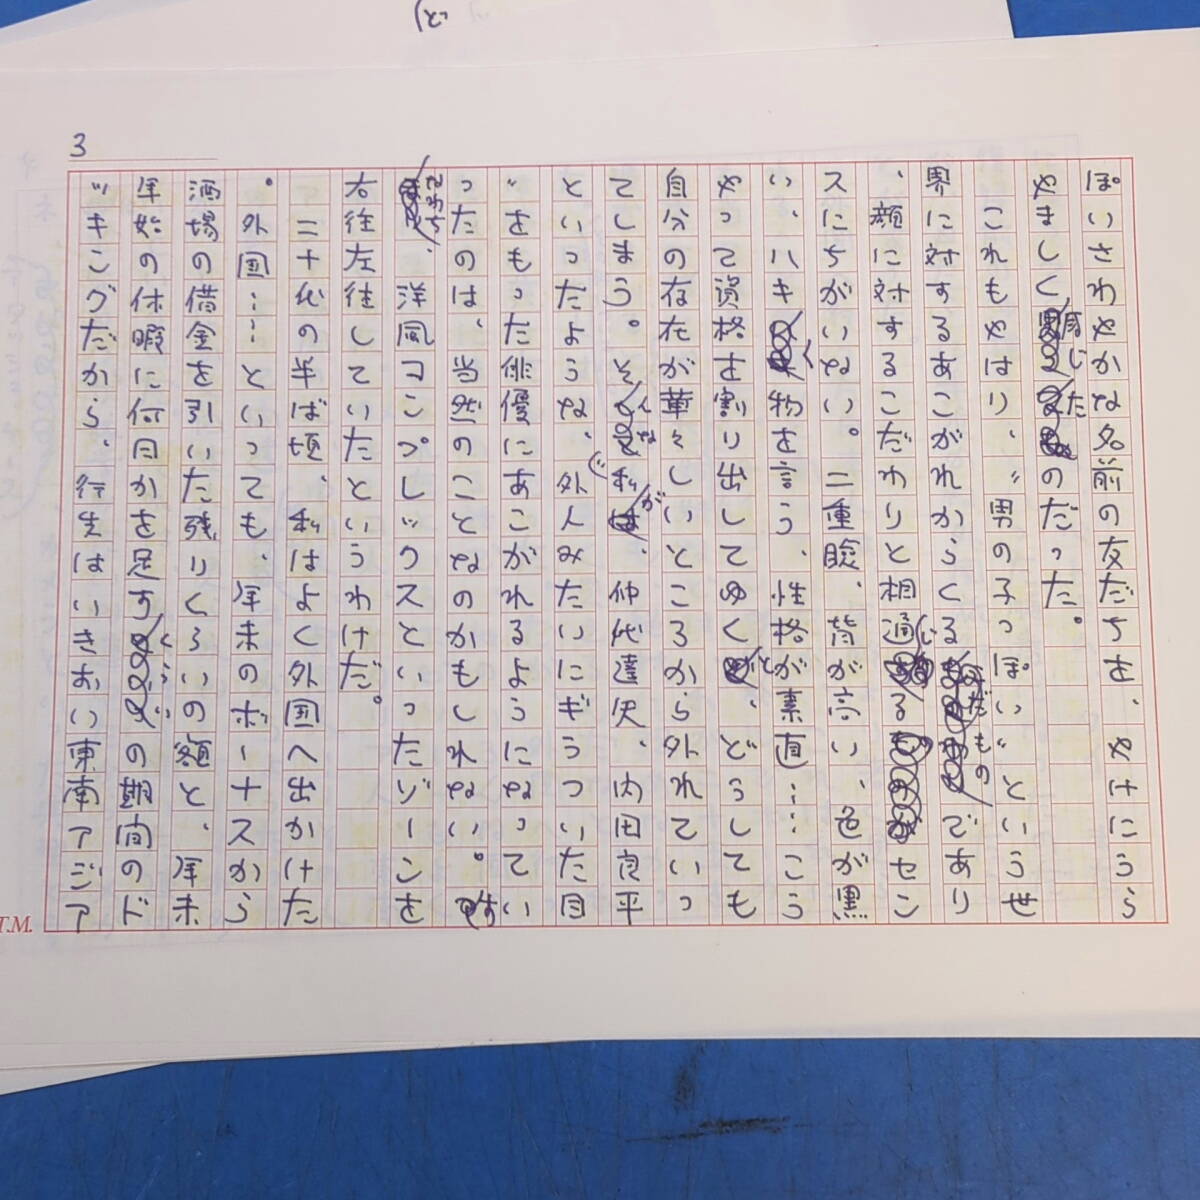 3
ぽいさわやかな名前の友だちを、やけにうら
やましく感じたのだった。
これもやはり、〝男の子っぽい〟という世
界に対するあこがれからくるものであり
、顔に対するこだわりと相通じるセン
スにちがいない。二重瞼、背が高い、色が黒
い、ハキハキ物を言う、性格が素直……こう
やって資格を割り出してゆくと、どうしても
自分の存在が華々しいところから外れていっ
てしまう。そんな私が、仲代達矢、内田良平
といったような、外人みたいにギラついた目
〟をもった俳優にあこがれるようになってい
ったのは、当然のことなのかもしれない。
すなわち、洋風コンプレックスといったゾーンを
右往左往していたというわけだ。
二十代の半ば頃、私はよく外国へ出かけた
。外国……といっても、年末のボーナスから
酒場の借金を引いた残りくらいの額と、年末
年始の休暇に何日かを足すくらいの期間のド
ッキングだから、行先はいきおい東南アジア
T.M.